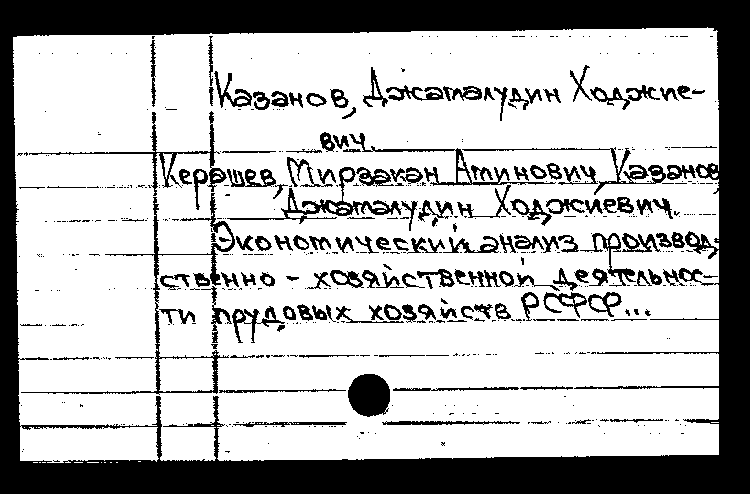 Казанов, Джамалудин Ходжие-
вич.
Керашев, Мирзакан Аминович, Казанов
Джамалудин Ходжиевич.
Экономический анализ производ-
ственно - хозяйственной деятельнос-
ти прудовых хозяйств РСФСР...